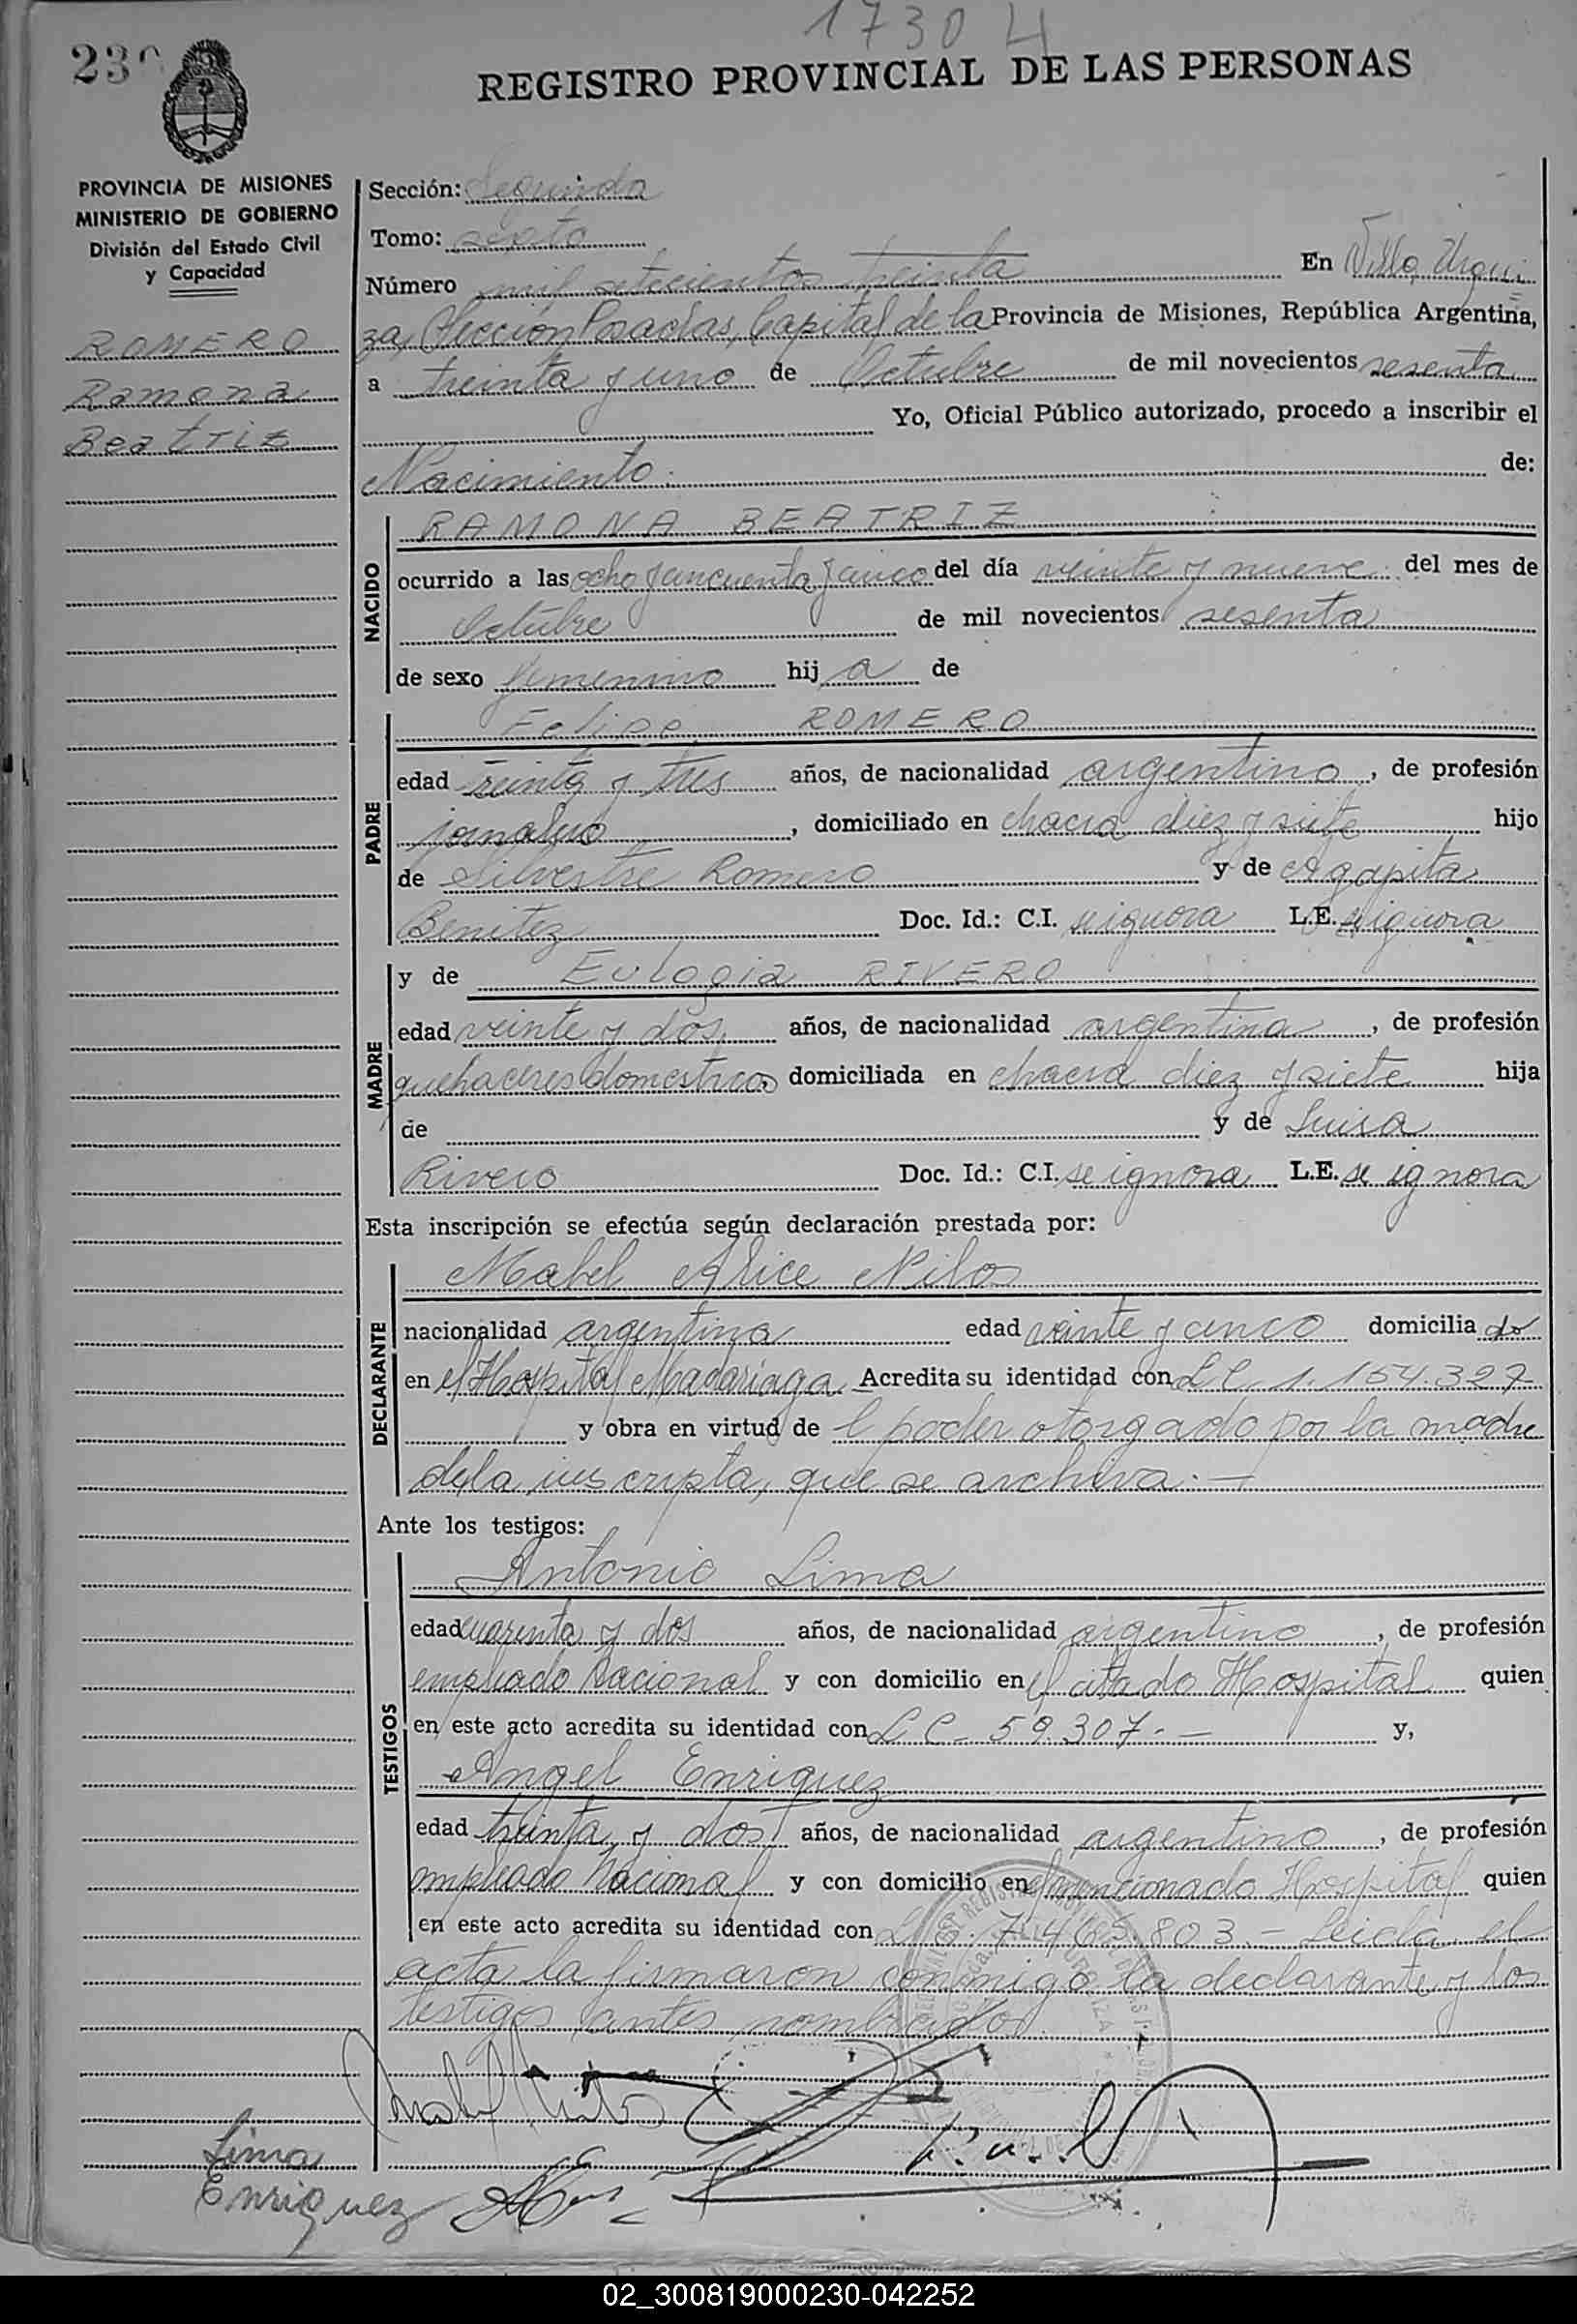 1730 4
230
REGISTRO PROVINCIAL DE LAS PERSONAS
PROVINCIA DE MISIONES
MINISTERIO DE GOBIERNO
División del Estado Civil
y Capacidad
ROMERO
Ramona
Beatriz
Sección: Segunda
Tomo: sexto
Número mil setecientos treinta En Villa Urqui
za, Sección Posadas, Capital de la Provincia de Misiones, República Argentina,
a treinta y uno de Octubre de mil novecientos sesenta
Yo, Oficial Público autorizado, procedo a inscribir el
Nacimiento. de:
NACIDO
RAMONA BEATRIZ
ocurrido a las ocho y cincuenta y cinco del día veinte y nueve del mes de
Octubre de mil novecientos sesenta
de sexo femenino hij a de
PADRE
Felipe ROMERO
edad treinta y tres años, de nacionalidad argentino, de profesión
jornalero, domiciliado en chacra diez y siete hijo
de Silvestre Romero y de Agapita
Benitez Doc. Id.: C.I. se ignora L.E. se ignora
MADRE
y de Eulogia RIVERO
edad veinte y dos años, de nacionalidad argentina, de profesión
quehaceres domesticos domiciliada en chacra diez y siete hija
de y de Luisa
Rivero Doc. Id.: C.I. se ignora L.E. se ignora
Esta inscripción se efectúa según declaración prestada por:
DECLARANTE
Mabel Alice
nacionalidad argentina edad veinte y cinco domicilia do
en el Hospital Madariaga. Acredita su identidad con L C 1.154.327
y obra en virtud de l poder otorgado por la madre
de la inscripta, que se archiva.—
Ante los testigos:
TESTIGOS
Antonio Lima
edad cuarenta y dos años, de nacionalidad argentino, de profesión
empleado Nacional y con domicilio en el citado Hospital quien
en este acto acredita su identidad con L C 59.307.— y,
Angel Enriquez
edad treinta y dos años, de nacionalidad argentino, de profesión
empleado Nacional y con domicilio en el mencionado Hospital quien
en este acto acredita su identidad con 7.465.803.— Leida el
acta la firmaron conmigo la declarante y los
testigos antes nombrados.
Lima
Enriquez
02_300819000230-042252